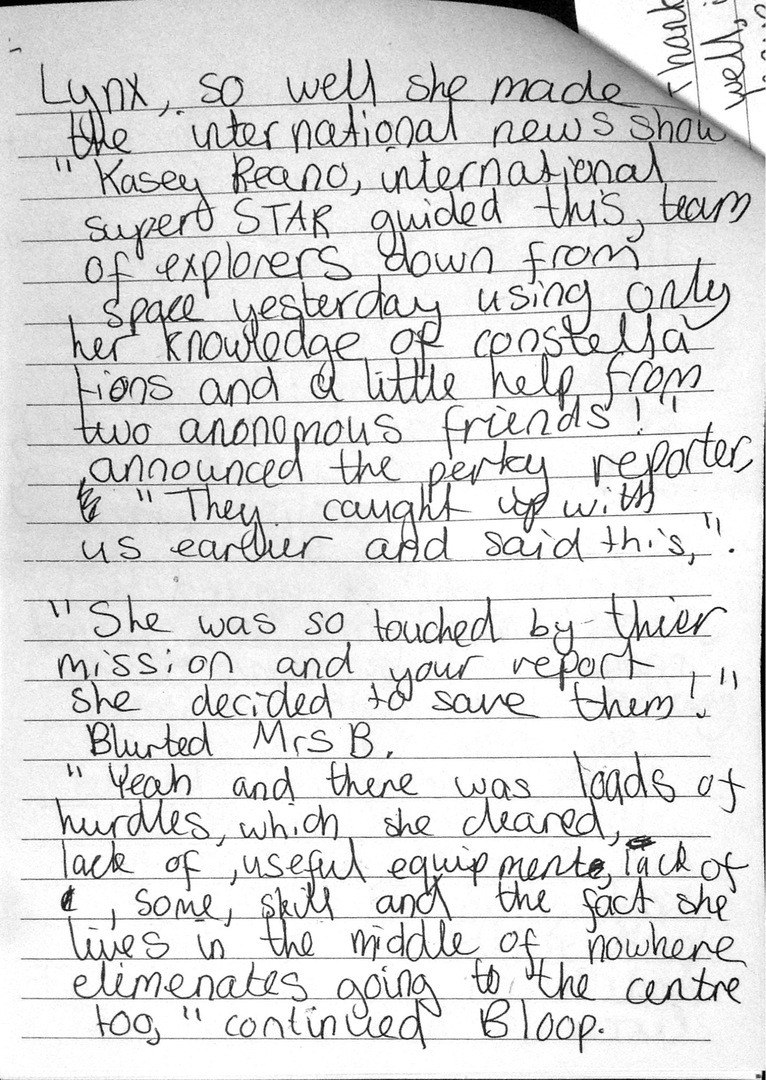 Lynx, so well she made
the international news show
" Kasey Reano, international
super STAR guided this, team
of explorers down from
space yesterday using only
her knowledge of constella
tions and a little help from
two anonomous friends! "
announced the perky reporter,
"They caught up with
us earlier and said this,".
"She was so touched by thier
mission and your report
she decided to save them!"
Blurted Mrs B.
"Yeah and there was loads of
hurdles, which she cleared,
lack of, useful equipment, lack of
, some, skill and the fact she
lives in the middle of nowhere
elimenates going to the centre
too," continued Bloop.
Thank
well,